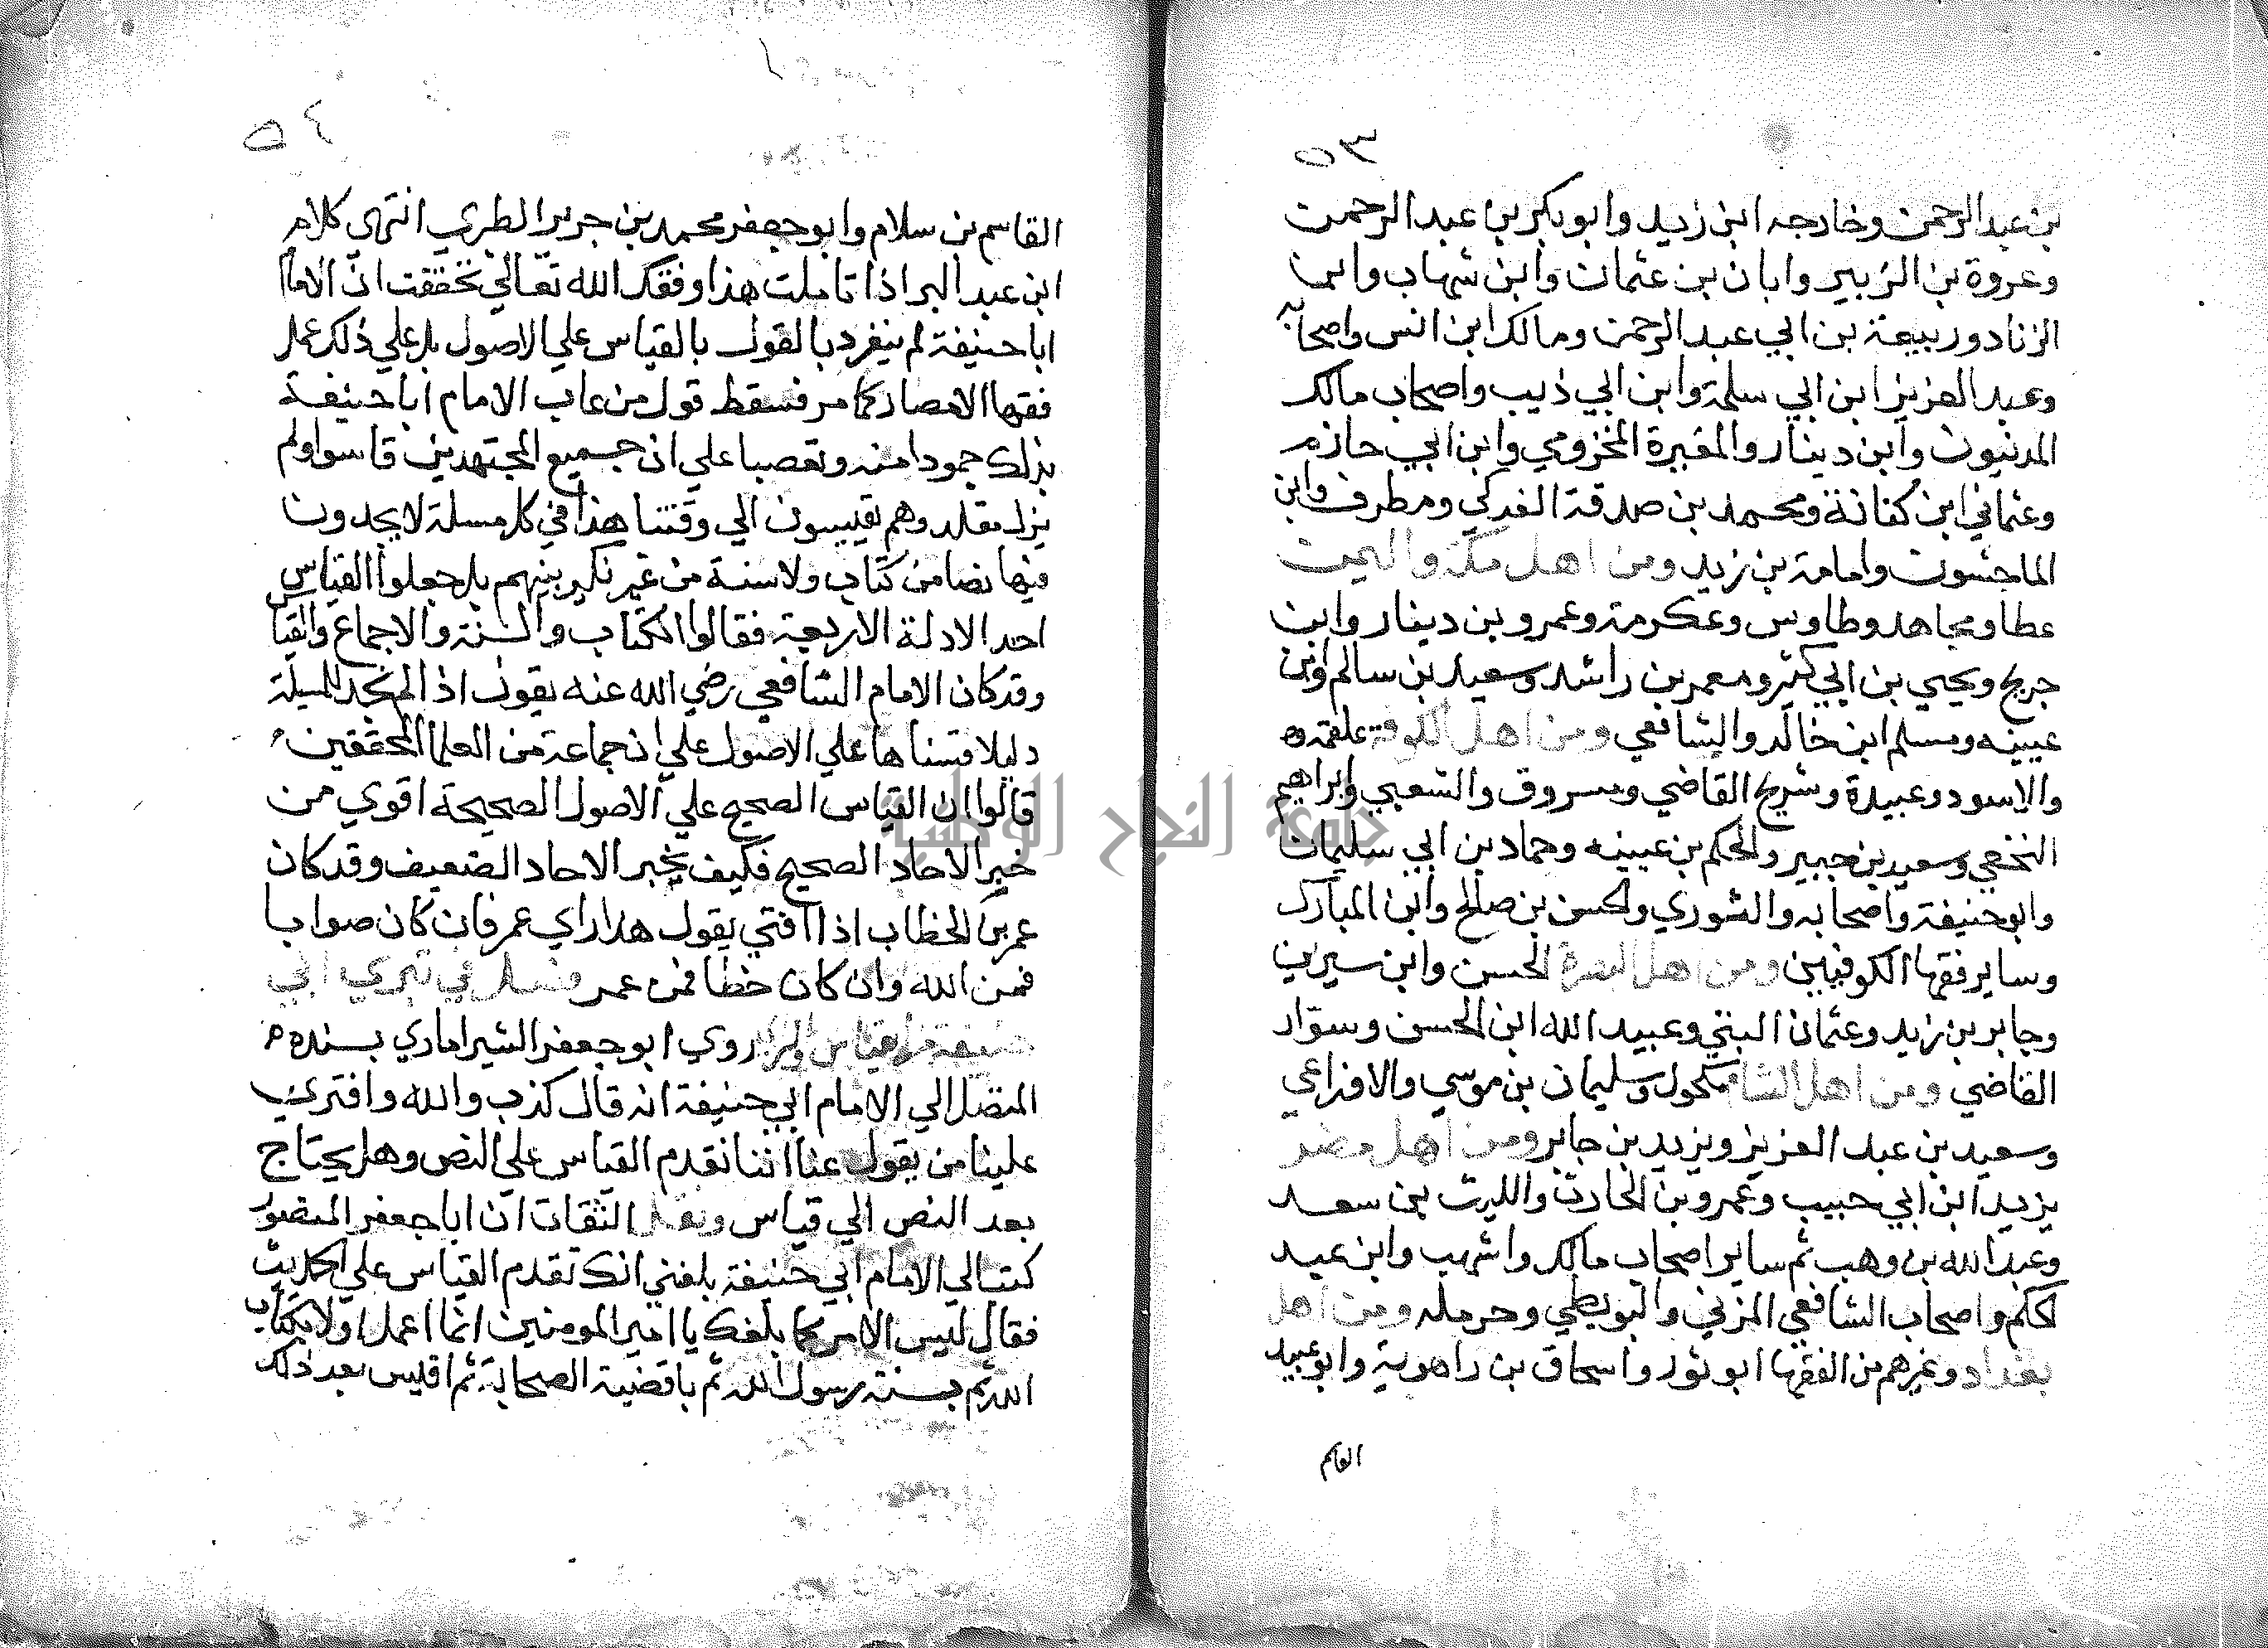 ٥٣
بن عبد الرحمن وخارجه ابن زيد وابو بكر بن عبد الرحمن
وعروة بن الزبير وابان بن عثمان وابن شهاب وابي
الزناد وربيعة بن ابي عبد الرحمن ومالك ابن انس واصحابه
وعبد العزيز ابن ابي سلمة وابن ابي ذيب واصحاب مالك
المدنيون وابن دينار والمغيرة المخزومي وابن ابي حازم
وعثماني ابن كنانة ومحمد بن صدقة الفدكي ومطرف وابن
الماجشون وامامة بن زيد ومن اهل مكة واليمن
عطا ومجاهد وطاوس وعكرمة وعمرو بن دينار وابن
جريج ويحيي بن ابي كثير ومعمر بن راشد وسعيد بن سالم وابن
عيينه ومسلم ابن خالد والشافعي ومن اهل الكوفة علقمة
والاسود وعبيدة وشريح القاضي ومسروق والشعبي وابراهيم
النخعي وسعيد بن جبير والحكم بن عيينه وحماد بن ابي سليمان
وابو حنيفة واصحابه والثوري والحسن بن صالح وابن المبارك
وساير فقها الكوفيين ومن اهل البصرة الحسن وابن سيرين
وجابر بن زيد وعثمان البتي وعبيد الله ابن الحسن وسوّار
القاضي ومن اهل الشام مكحول وسليمان بن موسي والاوزاعي
وسعيد بن عبد العزيز ويزيد بن جابر ومن اهل مصر
يزيد ابن ابي حبيب وعمرو بن الحارث والليث بن سعد
وعبد الله بن وهب ثم ساير اصحاب مالك واشهب وابن عبد
الحكم واصحاب الشافعي المزني والبويطي وحرمله ومن اهل
بغداد وغيرهم من الفقها ابو ثور واسحاق بن راهوية وابو عبيد
القاسم
٥٤
القاسم بن سلام وابو جعفر محمد بن جرير الطبري انتهي كلام
ابن عبد البر اذا تاملت هذا وفقك الله تعالي تحققت ان الامام
ابا حنيفة لم ينفرد بالقول بالقياس علي الاصول بل علي ذلك عمل
فقها الامصار كما مر فسقط قول من عاب الامام ابا حنيفة
بذلك جمودا منه وتعصبا علي ان جميع المجتهدين قاسوا ولم
يزل مقلدوهم يقيسون الي وقتنا هذا في كل مسلة لا يجدون
فيها نصا من كتاب ولا سنة من غير نكير بينهم بل جعلوا القياس
احد الادلة الاربعة فقالوا الكتاب والسنة والاجماع والقياس
وقد كان الامام الشافعي رضي الله عنه يقول اذا لم نجد للمسلة
دليلا قسناها علي الاصول علي ان جماعة من العلما المحققين
قالوا ان القياس الصحيح علي الاصول الصحيحة اقوي من
خبر الاحاد الصحيح فكيف بخبر الاحاد الضعيف وقد كان
عمر بن الخطاب اذا افتي يقول هذا راي عمر فان كان صوابا
فمن الله وان كان خطا فمن عمر فصل في تبري ابي
حنيفة من القياس روي ابو جعفر الشيراماري بسنده
المتصل الي الامام ابي حنيفة انه قال كذب والله وافتري
علينا من يقول عنا اننا نقدم القياس علي النص وهل يحتاج
بعد النص الي قياس ونقل الثقات ان ابا جعفر المنصور
كتب الي الامام ابي حنيفة بلغني انك تقدم القياس علي الحديث
فقال ليس الامر كما بلغك يا امير المومنين انما اعمل اولا بكتاب
الله ثم بسنة رسول الله ثم باقضية الصحابة ثم اقيس بعد ذلك
جامعة النجاح الوطنية